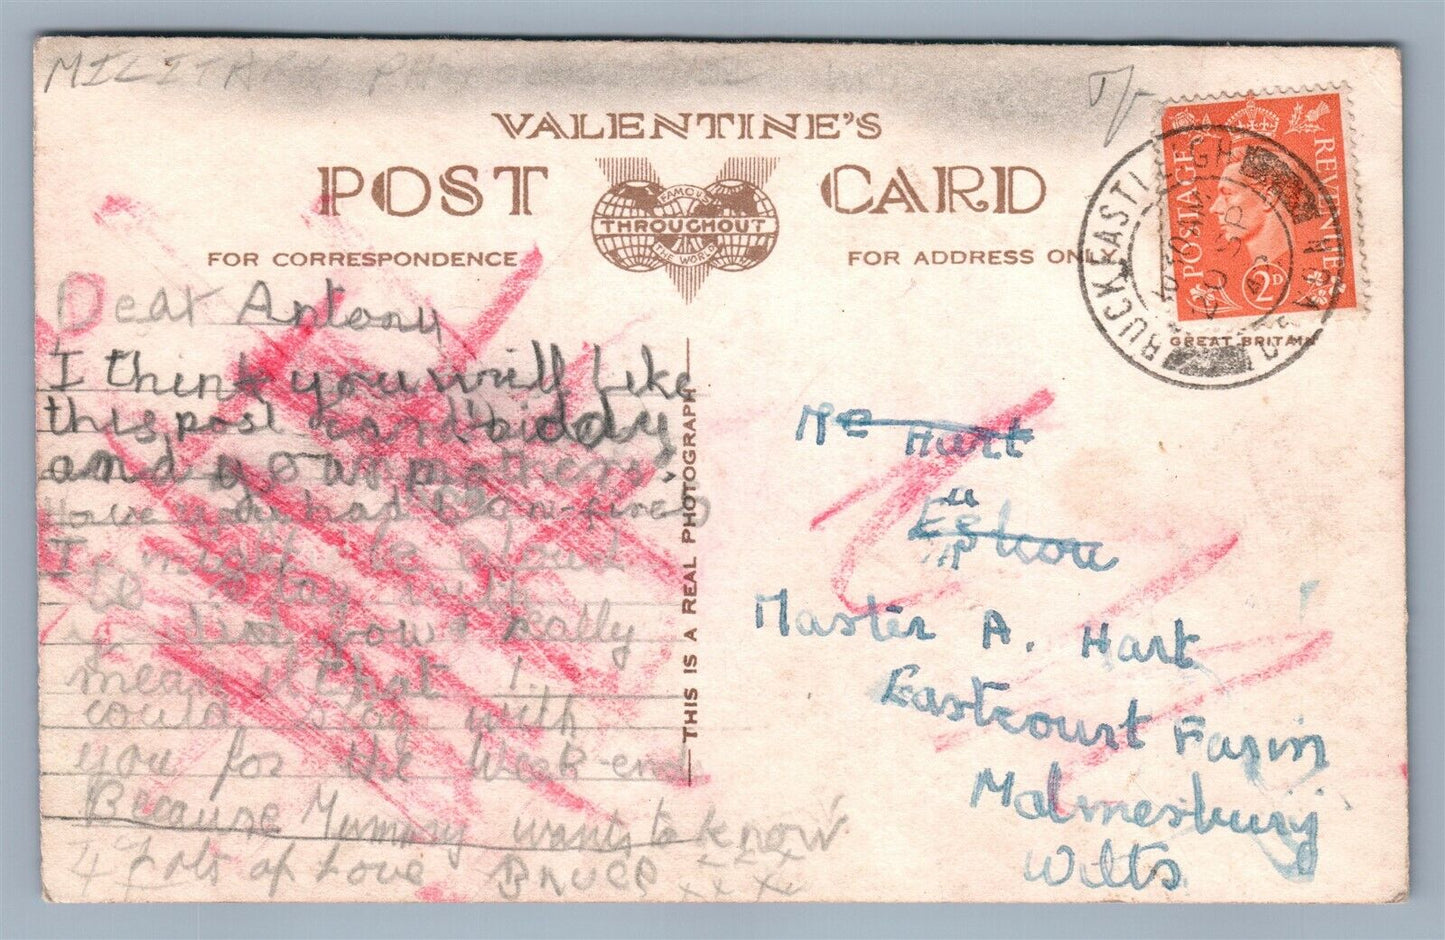 MILITARY
VALENTINE'S
POST CARD
FAMOUS
THROUGHOUT
THE WORLD
FOR CORRESPONDENCE
FOR ADDRESS ONLY
POSTAGE REVENUE
2D
GREAT BRITAIN
THIS IS A REAL PHOTOGRAPH
Dear Antony
I think you will like
this post card biddy
and your mothers.
Have you had
I might be
to stay with
really
mean that I
could stay with
you for the Week-end
Because Mummy wants to know
Lots of Love Bruce x x x
x x x
Hart
Master A. Hart
Eastcourt Farm
Malmesbury
Wilts